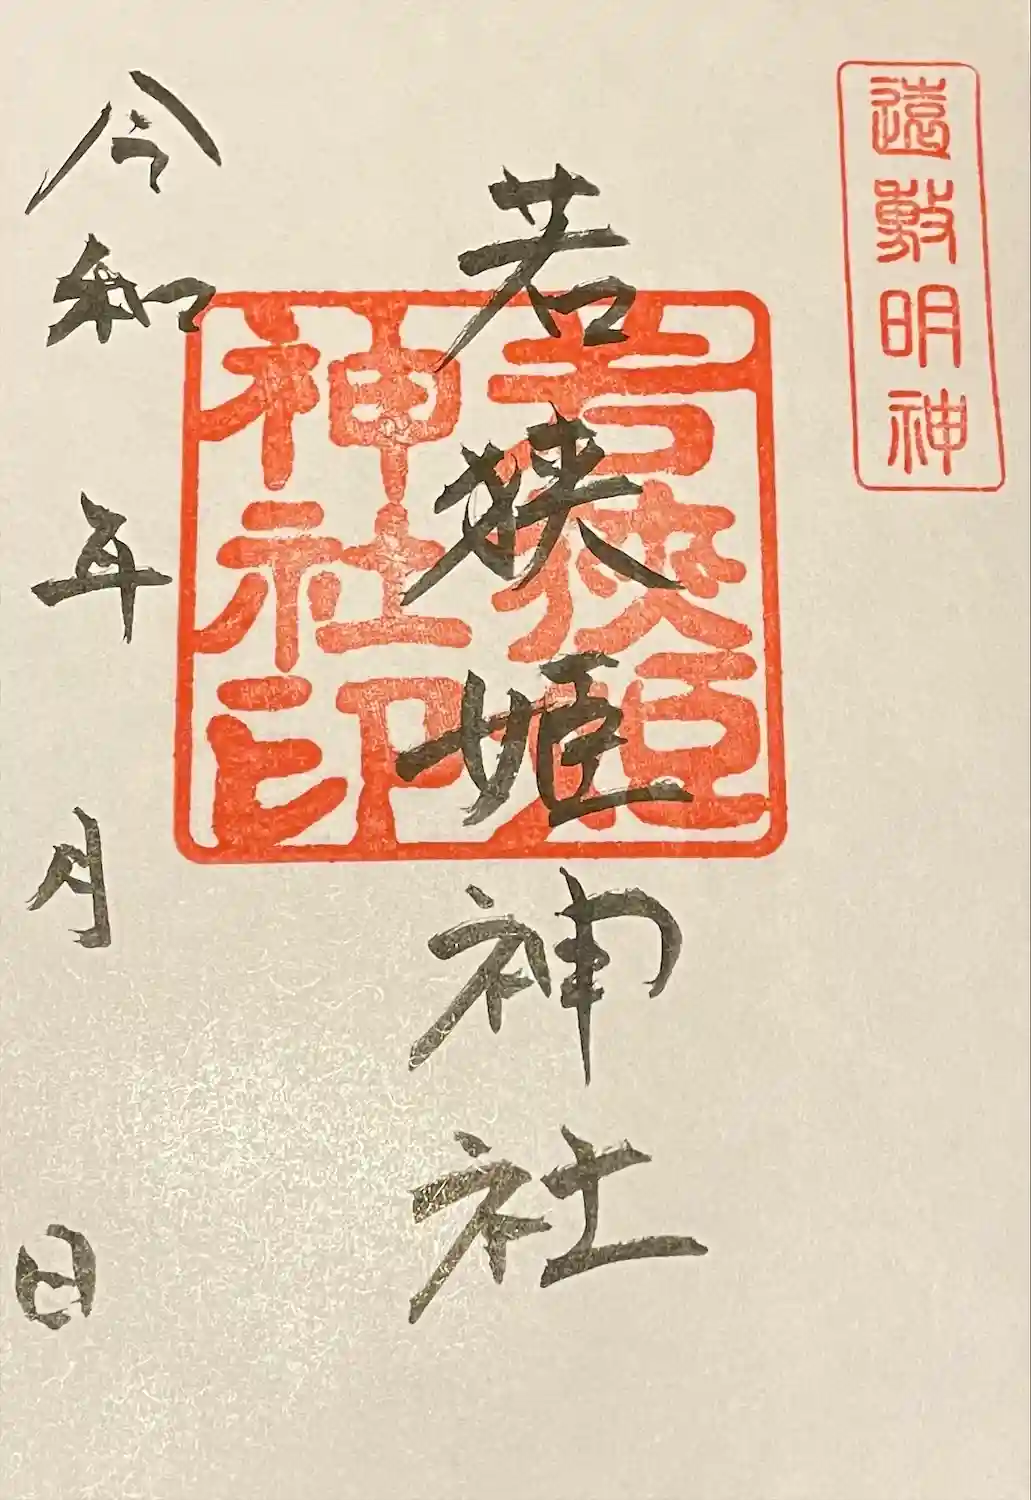 遠敷明神
若狭姫神社
若狭姫神社印
令和 年 月 日